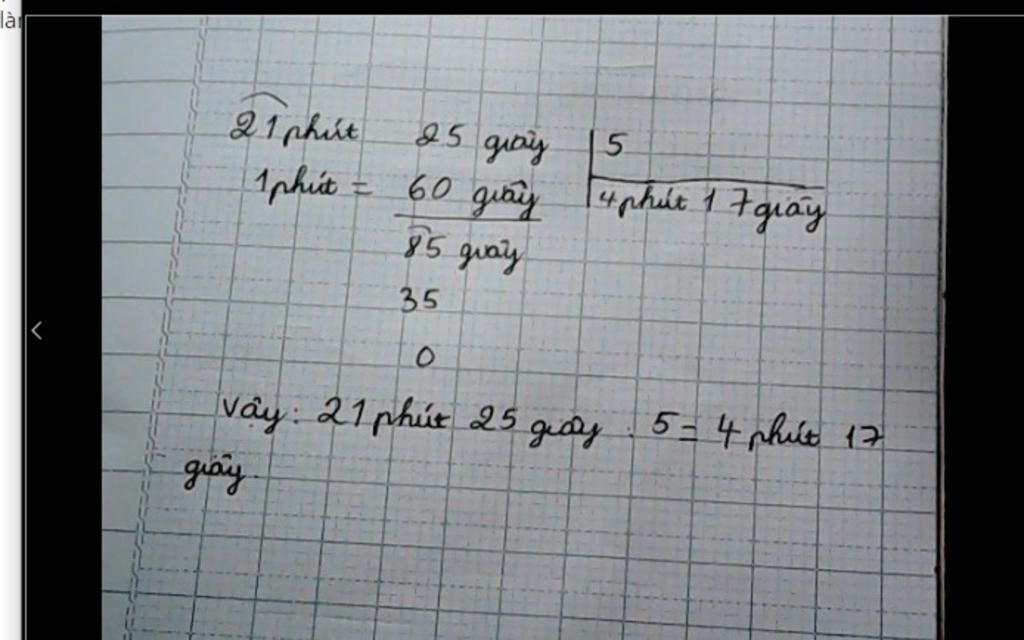 là
21 phút 25 giây 5
1 phút = 60 giây 4 phút 17 giây
85 giây
35
0
Vậy: 21 phút 25 giây : 5 = 4 phút 17
giây.